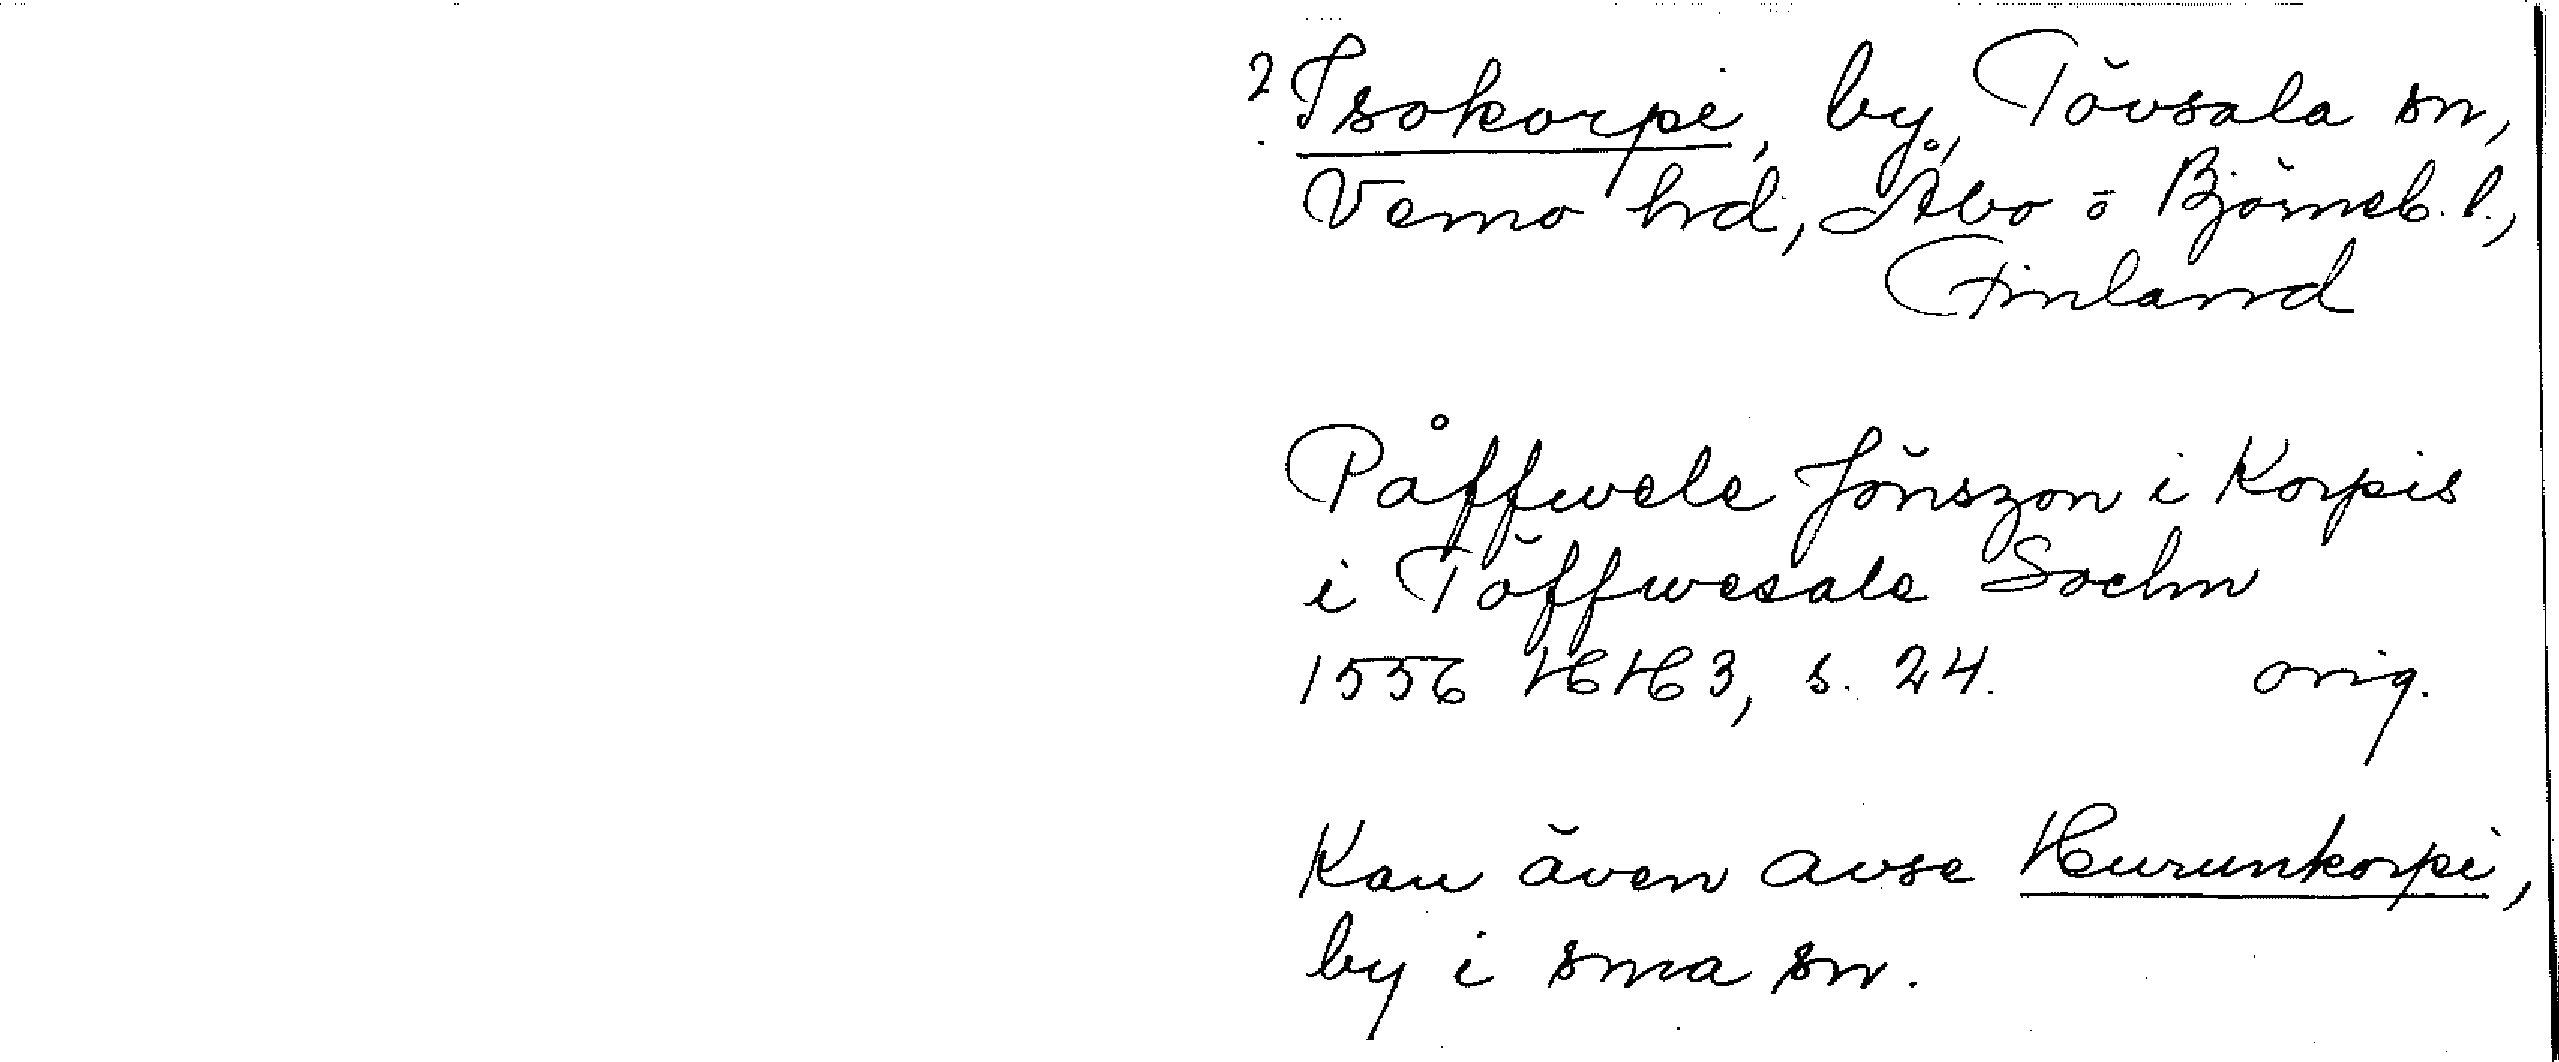 ? Isokorpi, by, Tövsala sn,
Vemo hd, Åbo o Björneb. l.,
Finland
Påffwele Jönszon i Korpis
i Töffwesale Sochn
1556 HH 3, s. 24. orig.
Kan även avse Hurunkorpi,
by i sma sn.